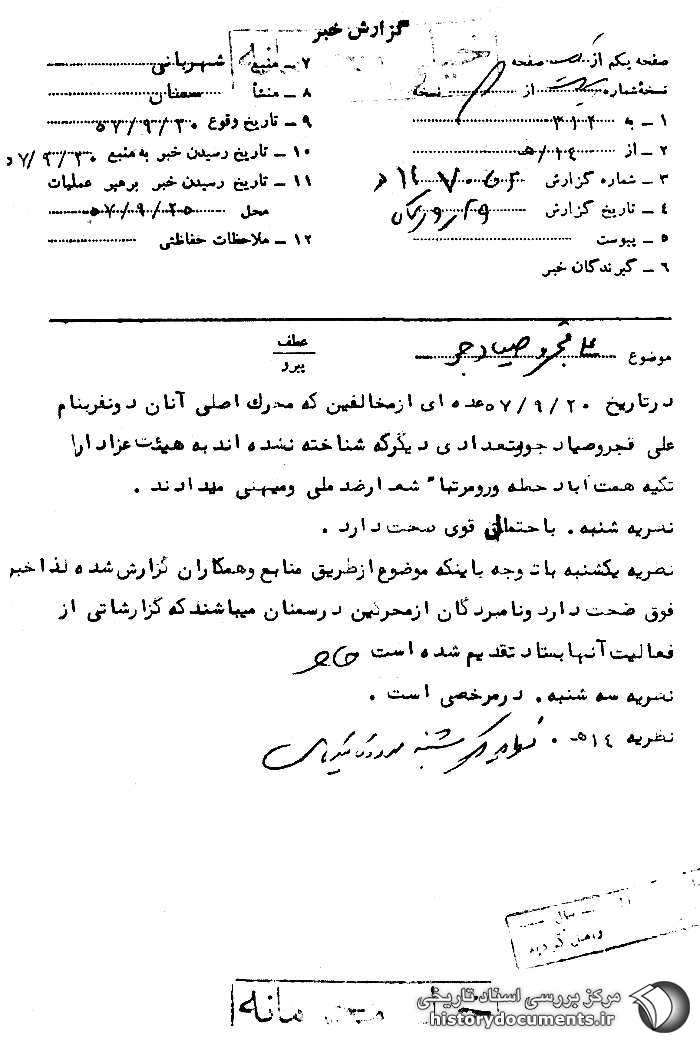 گزارش خبر
صفحه یکم از یک صفحه
نسخه شماره از نسخه
۱ ــ به ۳۱۲
۲ ــ از ۱۴/هـ
۳ ــ شماره گزارش
۴ ــ تاریخ گزارش
۵ ــ پیوست
۶ ــ گیرندگان خبر
۷ ــ منبع شهربانی
۸ ــ منشأ سمنان
۹ ــ تاریخ وقوع ۵۷/۹/۲۰
۱۰ ــ تاریخ رسیدن خبر به منبع ۵۷/۹/۲۰
۱۱ ــ تاریخ رسیدن خبر برهبر عملیات
محل ۵۷/۹/۲۵
۱۲ ــ ملاحظات حفاظتی
موضوع علی قجر و صیاد جو
عطف
پیرو
درتاریخ ۵۷/۹/۲۰ عده ای ازمخالفین که محرك اصلی آنان دونفربنام
علی قجروصیاد جووتعدادی دیگرکه شناخته نشده اند به هیئت عزادارا
تکیه همت آباد حمله ورومرتبا" شعارضد ملی ومیهنی میدادند .
نظریه شنبه . باحتمال قوی صحت دارد .
نظریه یکشنبه باتوجه باینکه موضوع ازطریق منابع وهمکاران گزارش شده لذا خبر
فوق صحت دارد ونامبردگان ازمحرکین درسمنان میباشند که گزارشاتی از
فعالیت آنها بستاد تقدیم شده است
نظریه سه شنبه . درمرخصی است .
نظریه ۱۴ هـ . شنبه
سال
واصل گردید
محرمانه
مرکز بررسی اسناد تاریخی
historydocuments.ir